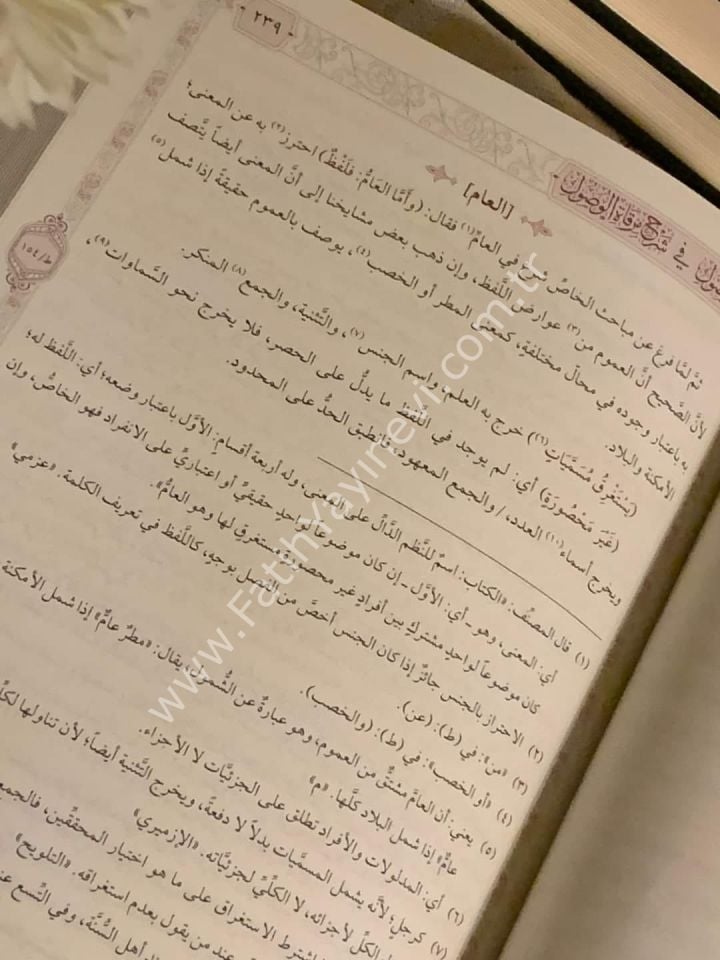 - ٢٣٩ -
في شرح مرقاة الوصول
[العام]
ثمَّ لمَّا فرغ عن مباحث الخاصِّ شرع في العامِّ(١) فقال: (وَأَمَّا العَامُّ: فَلَفْظٌ) احترز(٢) به عن المعنى؛
لأنَّ الصَّحيح أنَّ العموم من(٣) عوارض اللَّفظ، وإن ذهب بعض مشايخنا إلى أنَّ المعنى أيضاً يتَّصف
به باعتبار وجوده في محالّ مختلفةٍ، كمعنى المطر أو الخصب(٤)، يوصف بالعموم حقيقةً إذا شمل(٥)
الأمكنة والبلاد.
(يَسْتَغْرِقُ مُسَمَّيَاتٍ(٦)) خرج به العلم، واسم الجنس(٧)، والتَّثنية، والجمع(٨) المنكر.
(غَيْرَ مَحْصُورَةٍ) أي: لم يوجد في اللَّفظ ما يدلُّ على الحصر، فلا يخرج نحو السَّماوات(٩)،
ويخرج أسماء(١٠) العدد،/ والجمع المعهود، فانطبق الحدُّ على المحدود.
ظ/١٥٤
(١) قال المصنِّف: «الكتاب: اسمٌ للنَّظم الدَّالِّ على المعنى، وله أربعة أقسامٍ: الأوَّل باعتبار وضعه؛ أي: اللَّفظ له؛
أي: المعنى، وهو - أي: الأوَّل - إن كان موضوعاً لواحدٍ حقيقيٍّ أو اعتباريٍّ على الانفراد فهو الخاصُّ، وإن
كان موضوعاً لواحدٍ مشتركٍ بين أفرادٍ غير محصورةٍ مستغرق لها وهو العامُّ».
(٢) الاحتراز بالجنس جائزٌ إذا كان الجنس أخصَّ من الفصل بوجهٍ، كاللَّفظ في تعريف الكلمة. «عزمي»
(٣) «من»: في (ط): (عن).
(٤) «أو الخصب»: في (ط): (والخصب).
(٥) يعني: أن العامَّ مشتقٌّ من العموم، وهو عبارةٌ عن الشُّمول، يقال: «مطرٌ عامٌّ» إذا شمل الأمكنة
عامٌّ» إذا شمل البلاد كلَّها. «م»
(٦) أي: المدلولات والأفراد تطلق على الجزئيَّات لا الأجزاء.
(٧) كرجل؛ لأنَّه يشمل المسمَّيات بدلاً لا دفعةً، ويخرج التَّثنية أيضاً؛ لأن تناولها لكلِّ
الكلِّ لأجزائه، لا الكلِّيِّ لجزئيَّاته. «الإزميري»
اشترط الاستغراق على ما هو اختيار المحقِّقين، فالجمع
عند من يقول بعدم استغراقه. «التلويح»
أهل السُّنَّة، وفي التِّسع